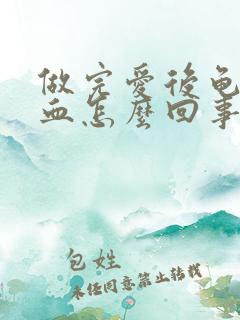 做完愛後龟
血怎麼回事
包姓
未经同意禁止转载